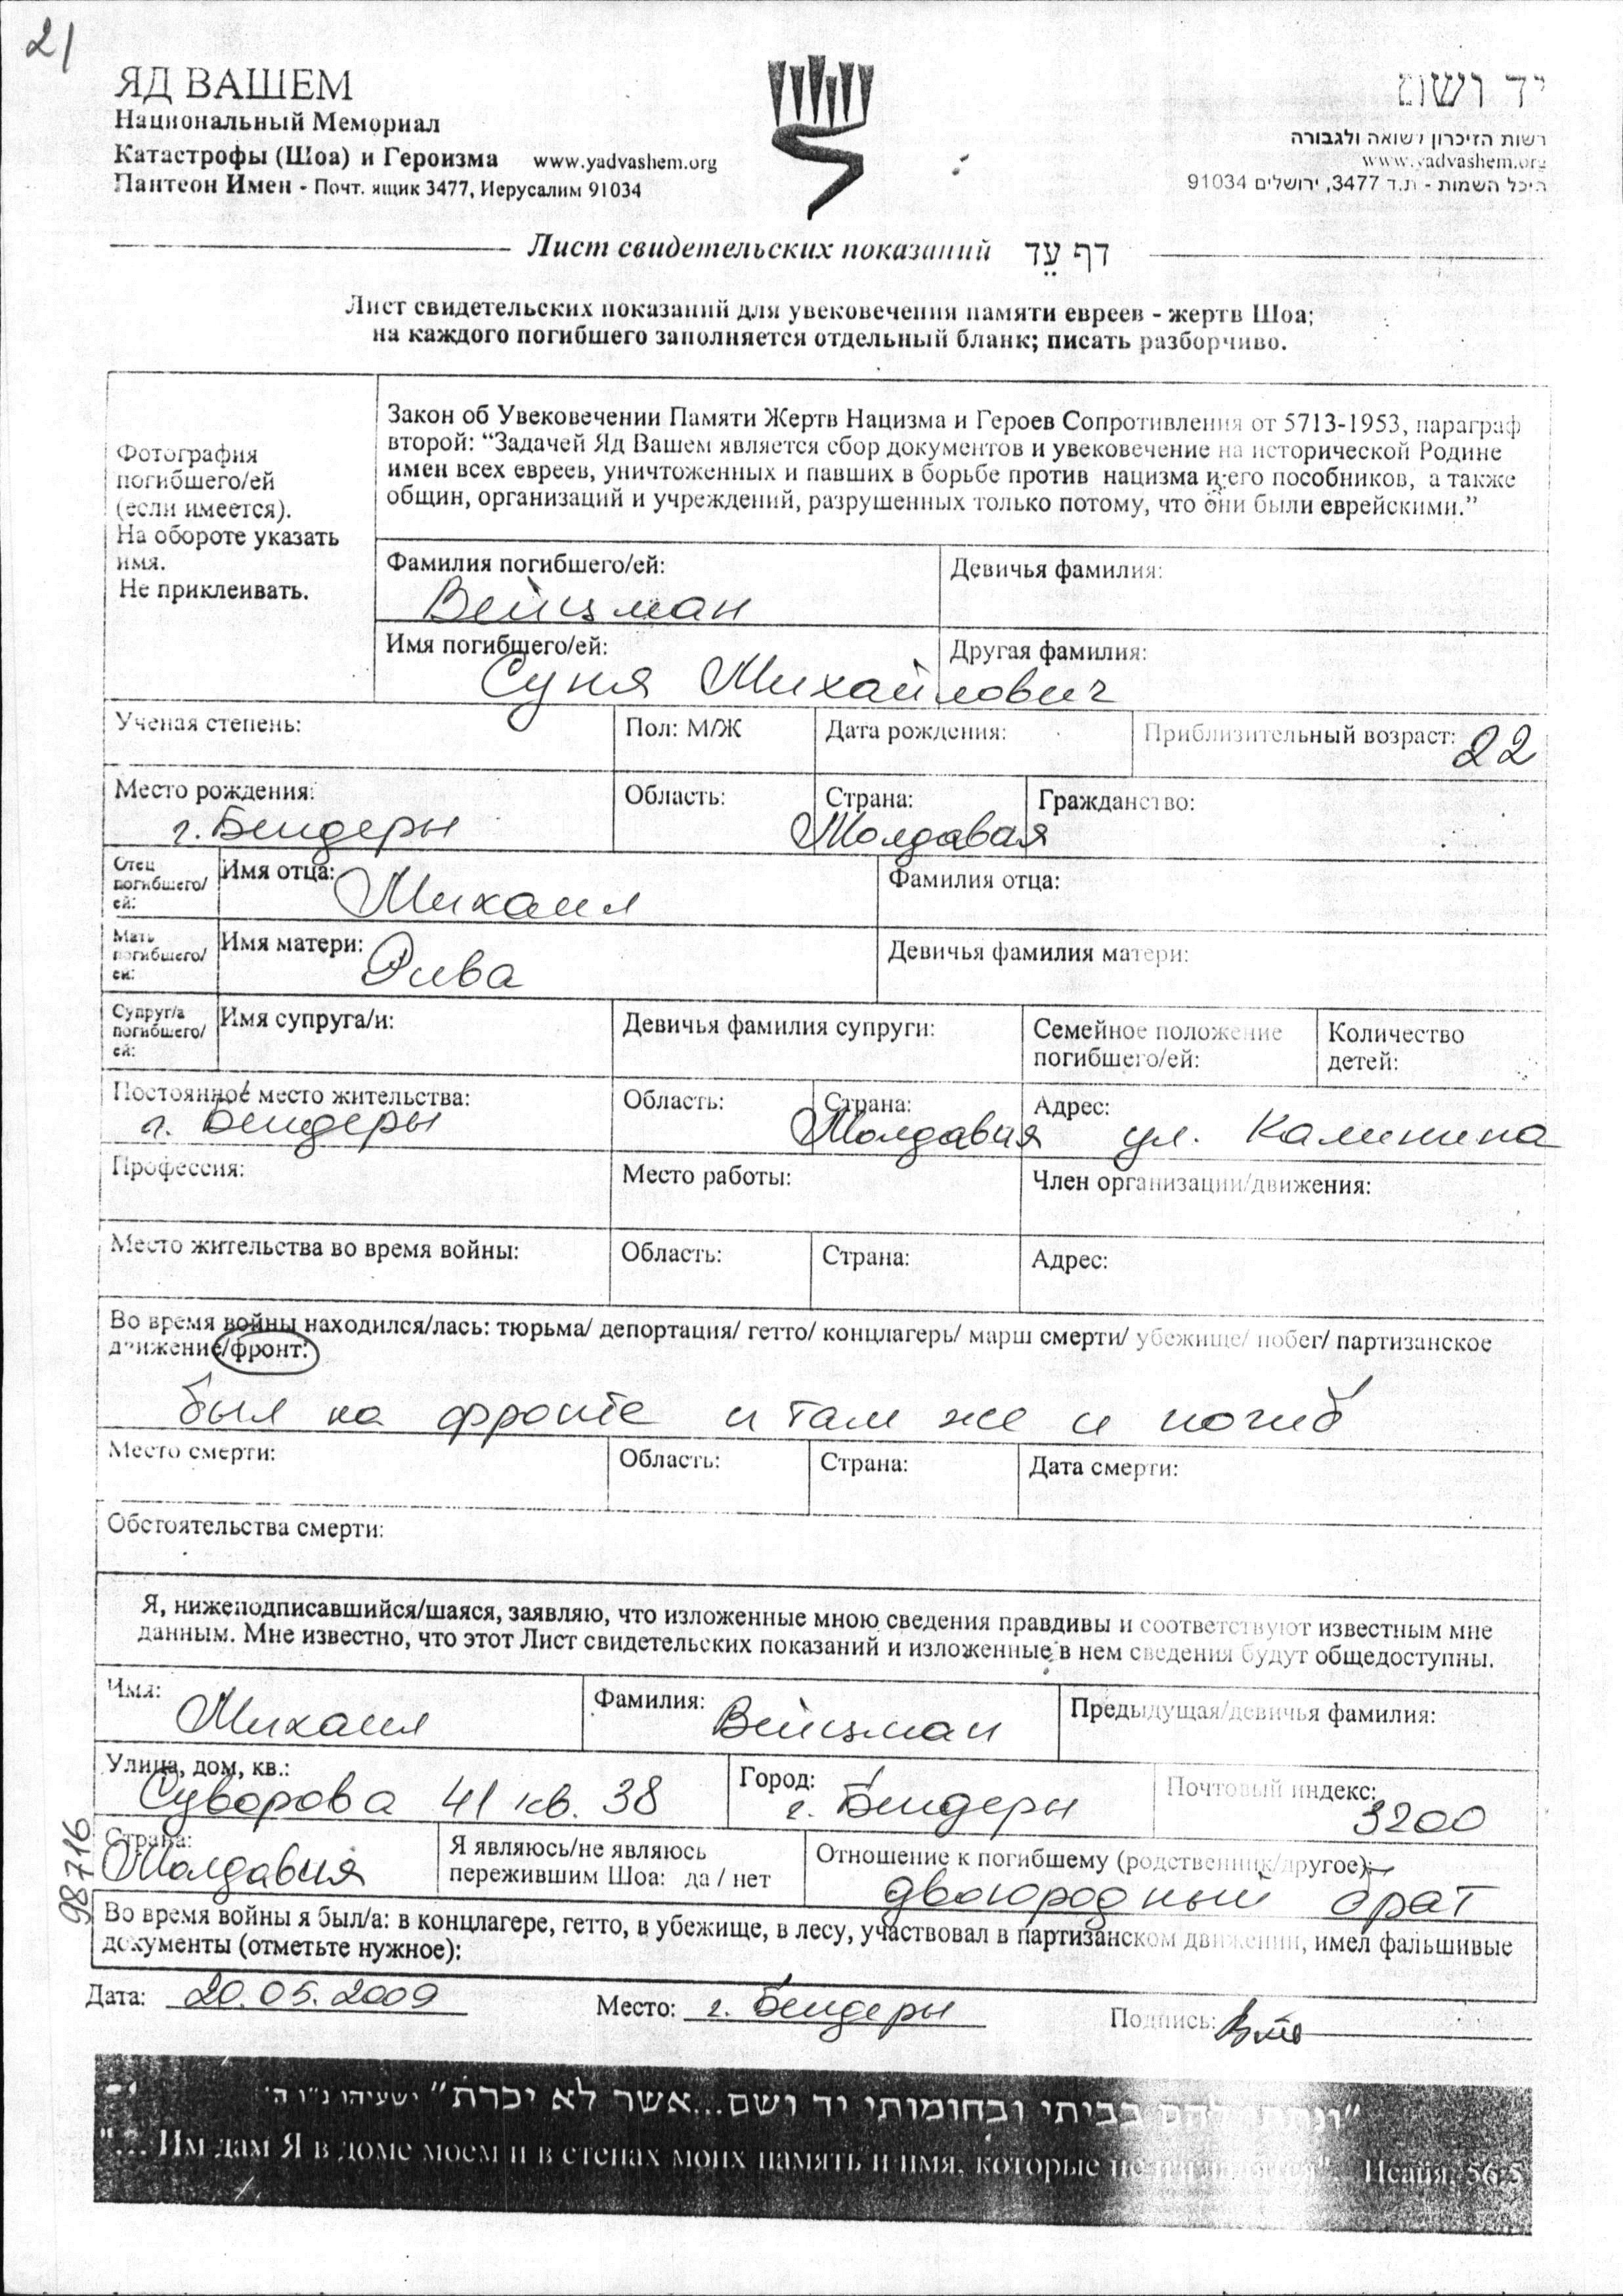 21
ЯД ВАШЕМ
Национальный Мемориал
Катастрофы (Шоа) и Героизма www.yadvashem.org
Пантеон Имен - Почт. ящик 3477, Иерусалим 91034
יד ושם
רשות הזיכרון לשואה ולגבורה
www.yadvashem.org
היכל השמות - ת.ד 3477, ירושלים 91034
Лист свидетельских показаний דף עֵד
Лист свидетельских показаний для увековечения памяти евреев - жертв Шоа;
на каждого погибшего заполняется отдельный бланк; писать разборчиво.
Фотография
погибшего/ей
(если имеется).
На обороте указать
имя.
Не приклеивать.
Закон об Увековечении Памяти Жертв Нацизма и Героев Сопротивления от 5713-1953, параграф
второй: “Задачей Яд Вашем является сбор документов и увековечение на исторической Родине
имен всех евреев, уничтоженных и павших в борьбе против нацизма и его пособников, а также
общин, организаций и учреждений, разрушенных только потому, что они были еврейскими.”
Фамилия погибшего/ей: Девичья фамилия:
Вейцман
Имя погибшего/ей: Другая фамилия:
Суня Михайлович
Ученая степень: Пол: М/Ж Дата рождения: Приблизительный возраст: 22
Место рождения: Область: Страна: Гражданство:
г. Бендеры Молдавая
Отец погибшего/ей: Имя отца: Михаил Фамилия отца:
Мать погибшего/ей: Имя матери: Рива Девичья фамилия матери:
Супруг/а погибшего/ей: Имя супруга/и: Девичья фамилия супруги: Семейное положение погибшего/ей: Количество детей:
Постоянное место жительства: Область: Страна: Адрес:
г. Бендеры Молдавия ул. Калинина
Профессия: Место работы: Член организации/движения:
Место жительства во время войны: Область: Страна: Адрес:
Во время войны находился/лась: тюрьма/ депортация/ гетто/ концлагерь/ марш смерти/ убежище/ побег/ партизанское
движение/фронт:
был на фронте и там же и погиб
Место смерти: Область: Страна: Дата смерти:
Обстоятельства смерти:
Я, нижеподписавшийся/шаяся, заявляю, что изложенные мною сведения правдивы и соответствуют известным мне
данным. Мне известно, что этот Лист свидетельских показаний и изложенные в нем сведения будут общедоступны.
Имя: Фамилия: Предыдущая/девичья фамилия:
Михаил Вейцман
Улица, дом, кв.: Город: Почтовый индекс:
Суворова 41 кв. 38 г. Бендеры 3200
Страна: Я являюсь/не являюсь Отношение к погибшему (родственник/другое):
Молдавия пережившим Шоа: да / нет двоюродный брат
98716
Во время войны я был/а: в концлагере, гетто, в убежище, в лесу, участвовал в партизанском движении, имел фальшивые
документы (отметьте нужное):
Дата: 20.05.2009 Место: г. Бендеры Подпись:
"ונתתי להם בביתי ובחומותי יד ושם...אשר לא יכרת" ישעיהו נ"ו ה'
"... Им дам Я в доме моем и в стенах моих память и имя, которые не Исайя, 56:5